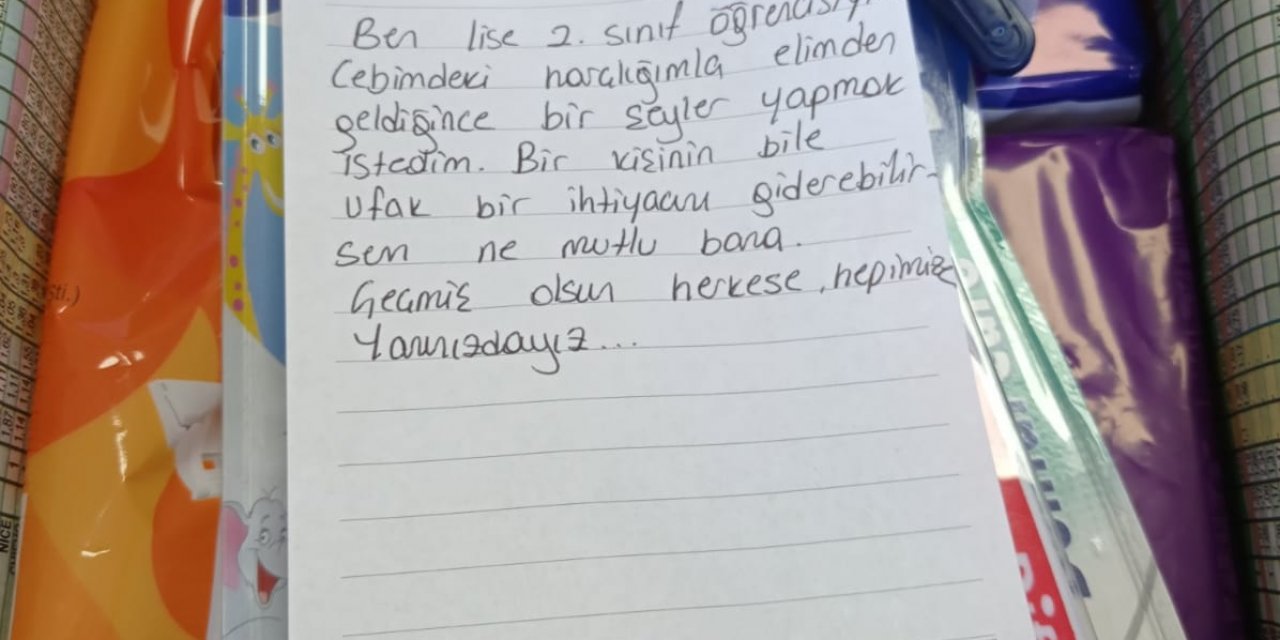 Ben lise 2. sınıf öğrencisiy
Cebimdeki harçlığımla elimden
geldiğince bir şeyler yapmak
istedim. Bir kişinin bile
ufak bir ihtiyacını giderebilir-
sem ne mutlu bana.
Geçmiş olsun herkese, hepimiz
Yanınızdayız...
sti.)
NICE